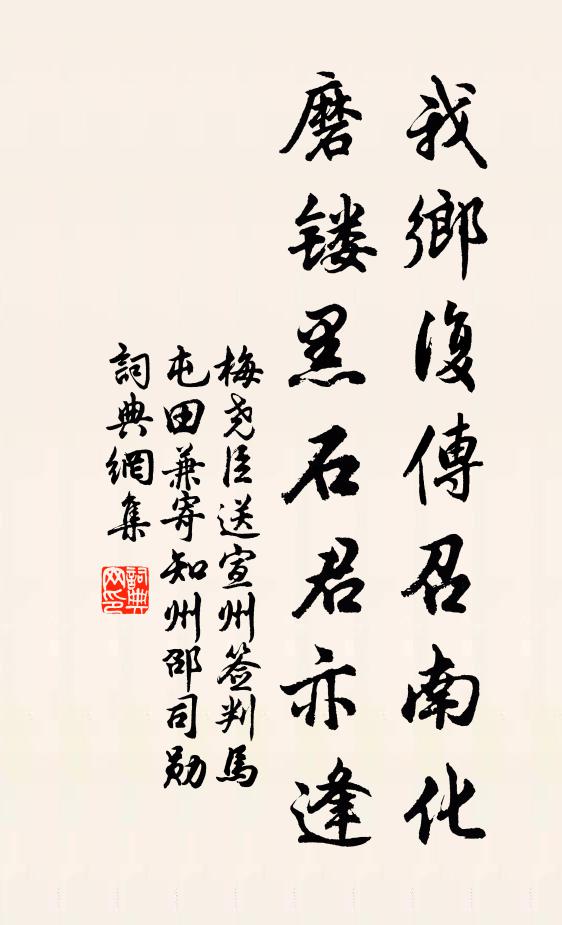 我鄉復傳召南化
磨镂黑石君亦逢
梅尧臣送宣州签判馬
屯田兼寄知州邵司勋
詞典網集
詞典网印